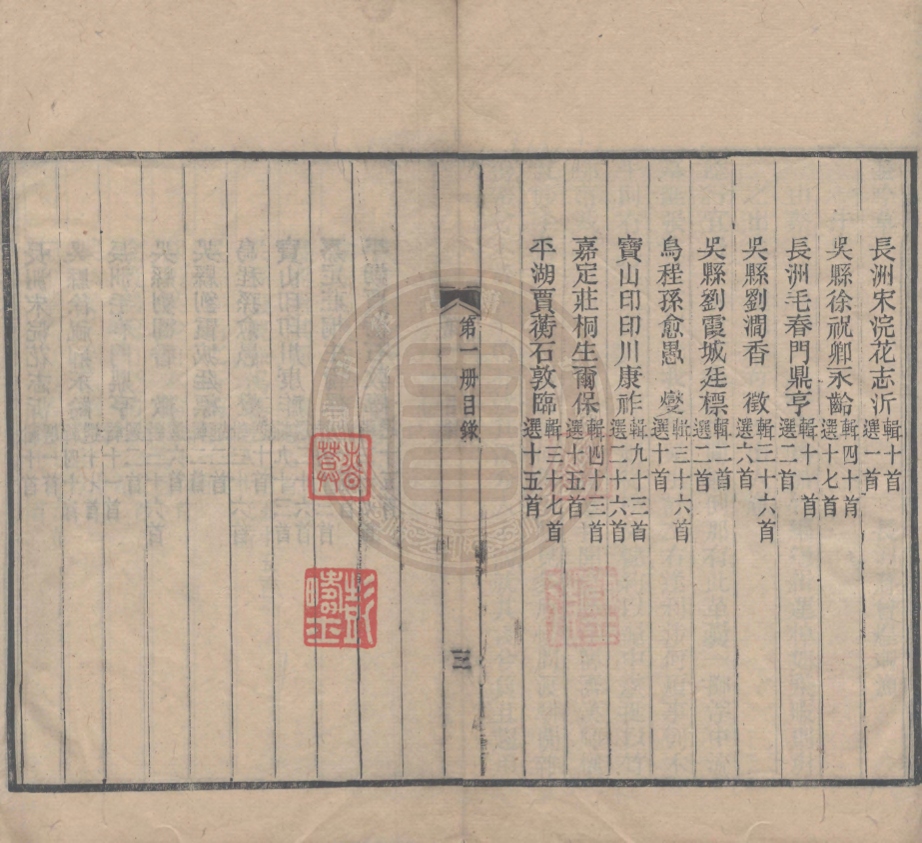 長洲宋浣花志沂輯十首選一首
吳縣徐祝卿永齡輯四十首選十七首
長洲毛春門鼎亨輯十一首選二首
吳縣劉澗香 徵輯二十六首選六首
吳縣劉霞城廷標輯二首選二首
烏程孫愈愚 燮輯三十六首選十首
寶山印印川康祚輯九十三首選二十六首
嘉定莊桐生爾保輯四十三首選十五首
平湖賈蘅石敦臨輯三十七首選十五首
第一册目錄
三